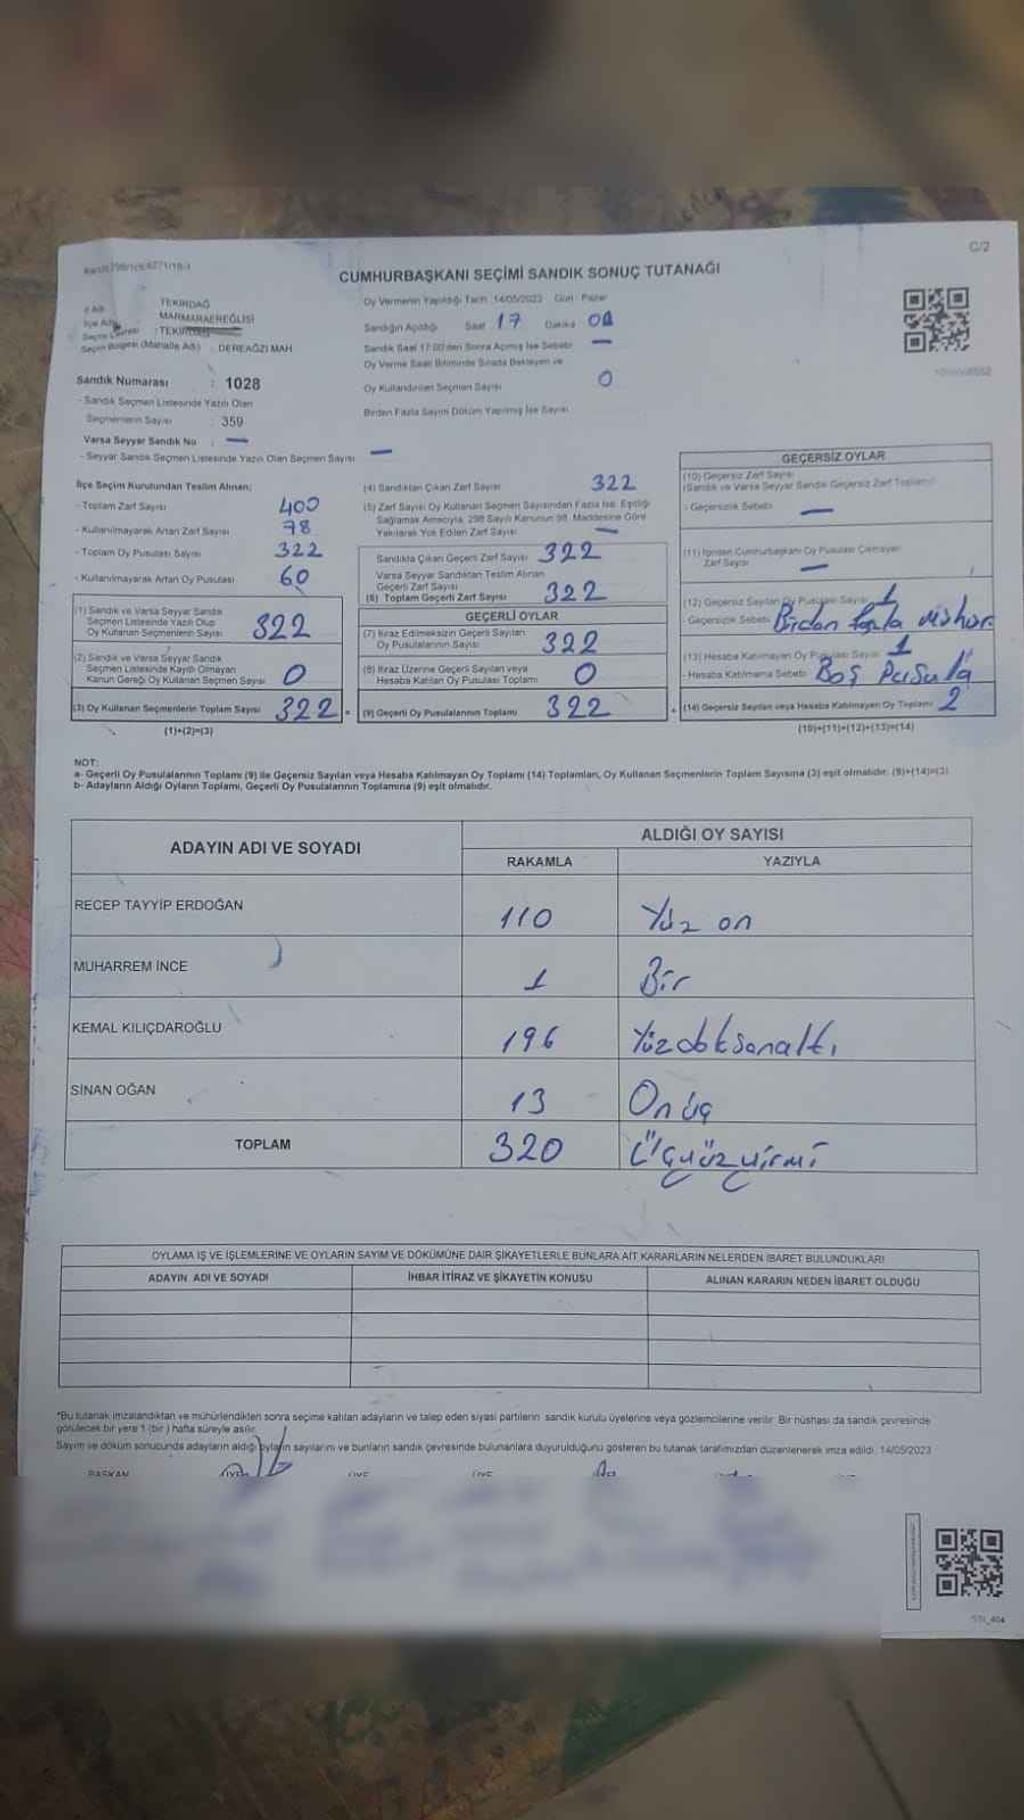 C/2
CUMHURBAŞKANI SEÇİMİ SANDIK SONUÇ TUTANAĞI
İl Adı TEKİRDAĞ
İlçe Adı MARMARAEREĞLİSİ
Seçim Çevresi : TEKİRDAĞ
Seçim Bölgesi (Mahalle Adı) : DEREAĞZI MAH
Sandık Numarası : 1028
- Sandık Seçmen Listesinde Yazılı Olan
Seçmenlerin Sayısı : 359
Varsa Seyyar Sandık No : —
- Seyyar Sandık Seçmen Listesinde Yazılı Olan Seçmen Sayısı —
Oy Vermenin Yapıldığı Tarih 14/05/2023 Gün : Pazar
Sandığın Açıldığı Saat 17 Dakika
Sandık Saat 17:00'den Sonra Açılmış İse Sebebi —
Oy Verme Saati Bitiminde Sırada Bekleyen ve
Oy Kullandırılan Seçmen Sayısı 0
Birden Fazla Sayım Döküm Yapılmış İse Sayısı
İlçe Seçim Kurulundan Teslim Alınan;
- Toplam Zarf Sayısı 400
- Kullanılmayarak Artan Zarf Sayısı 78
- Toplam Oy Pusulası Sayısı 322
- Kullanılmayarak Artan Oy Pusulası 60
(1) Sandık ve Varsa Seyyar Sandık
Seçmen Listesinde Yazılı Olup
Oy Kullanan Seçmenlerin Sayısı 322
(2) Sandık ve Varsa Seyyar Sandık
Seçmen Listesinde Kayıtlı Olmayan
Kanun Gereği Oy Kullanan Seçmen Sayısı 0
(3) Oy Kullanan Seçmenlerin Toplam Sayısı 322 =
(1)+(2)=(3)
(4) Sandıktan Çıkan Zarf Sayısı 322
(5) Zarf Sayısı Oy Kullanan Seçmen Sayısından Fazla İse, Eşitliği
Sağlamak Amacıyla, 298 Sayılı Kanunun 98. Maddesine Göre
Yakılarak Yok Edilen Zarf Sayısı —
Sandıkta Çıkan Geçerli Zarf Sayısı 322
Varsa Seyyar Sandıktan Teslim Alınan
Geçerli Zarf Sayısı
(6) Toplam Geçerli Zarf Sayısı 322
GEÇERLİ OYLAR
(7) İtiraz Edilmeksizin Geçerli Sayılan
Oy Pusulalarının Sayısı 322
(8) İtiraz Üzerine Geçerli Sayılan veya
Hesaba Katılan Oy Pusulası Toplamı 0
(9) Geçerli Oy Pusulalarının Toplamı 322 +
GEÇERSİZ OYLAR
(10) Geçersiz Zarf Sayısı
(Sandık ve Varsa Seyyar Sandık Geçersiz Zarf Toplamı)
- Geçersizlik Sebebi —
(11) İçinden Cumhurbaşkanı Oy Pusulası Çıkmayan
Zarf Sayısı —
(12) Geçersiz Sayılan Oy Pusulası Sayısı 1
- Geçersizlik Sebebi Birdan fazla Mühür
(13) Hesaba Katılmayan Oy Pusulası Sayısı 1
- Hesaba Katılmama Sebebi Boş Pusula
(14) Geçersiz Sayılan veya Hesaba Katılmayan Oy Toplamı 2
(10)+(11)+(12)+(13)=(14)
NOT:
a- Geçerli Oy Pusulalarının Toplamı (9) ile Geçersiz Sayılan veya Hesaba Katılmayan Oy Toplamı (14) Toplamları, Oy Kullanan Seçmenlerin Toplam Sayısına (3) eşit olmalıdır. (9)+(14)=(3)
b- Adayların Aldığı Oyların Toplamı, Geçerli Oy Pusulalarının Toplamına (9) eşit olmalıdır.
ADAYIN ADI VE SOYADI ALDIĞI OY SAYISI
RAKAMLA YAZIYLA
RECEP TAYYİP ERDOĞAN 110 Yüz on
MUHARREM İNCE 1 Bir
KEMAL KILIÇDAROĞLU 196 Yüzdoksanaltı
SİNAN OĞAN 13 Onüç
TOPLAM 320 Üçyüzyirmi
OYLAMA İŞ VE İŞLEMLERİNE VE OYLARIN SAYIM VE DÖKÜMÜNE DAİR ŞİKAYETLERLE BUNLARA AİT KARARLARIN NELERDEN İBARET BULUNDUKLARI
ADAYIN ADI VE SOYADI İHBAR İTİRAZ VE ŞİKAYETİN KONUSU ALINAN KARARIN NEDEN İBARET OLDUĞU
*Bu tutanak imzalandıktan ve mühürlendikten sonra seçime katılan adayların ve talep eden siyasi partilerin sandık kurulu üyelerine veya gözlemcilerine verilir. Bir nüshası da sandık çevresinde
görülecek bir yere 1 (bir) hafta süreyle asılır.
Sayım ve döküm sonucunda adayların aldığı oyların sayılarını ve bunların sandık çevresinde bulunanlara duyurulduğunu gösteren bu tutanak tarafımızdan düzenlenerek imza edildi. 14/05/2023
BAŞKAN ÜYE ÜYE ÜYE